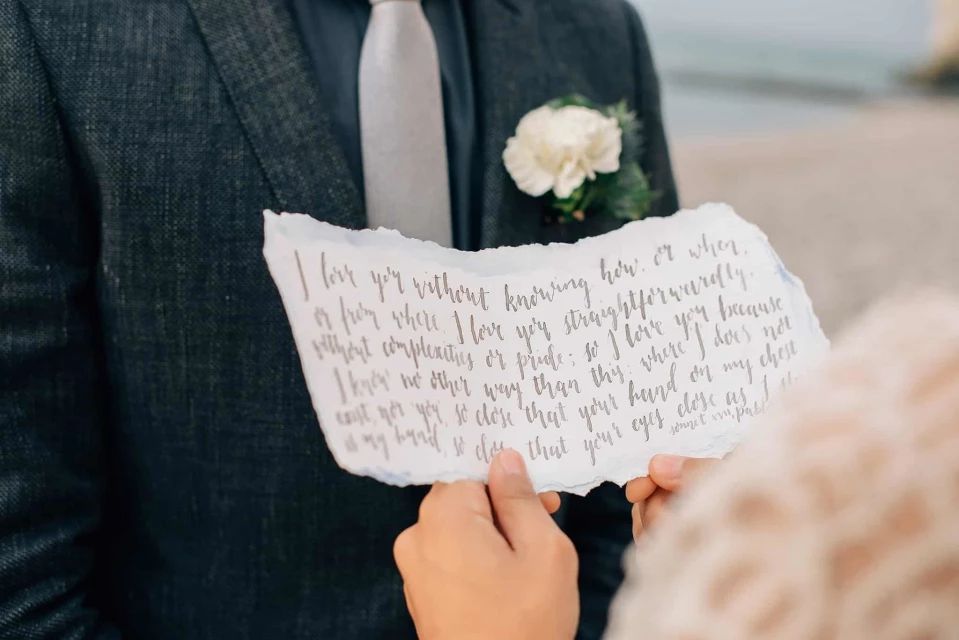 I love you without knowing how, or when,
or from where. I love you straightforwardly,
without complexities or pride; so I love you because
I know no other way than this: where I does not
exist, nor you, so close that your hand on my chest
is my hand, so close that your eyes close as I
sonnet xvii, pablo